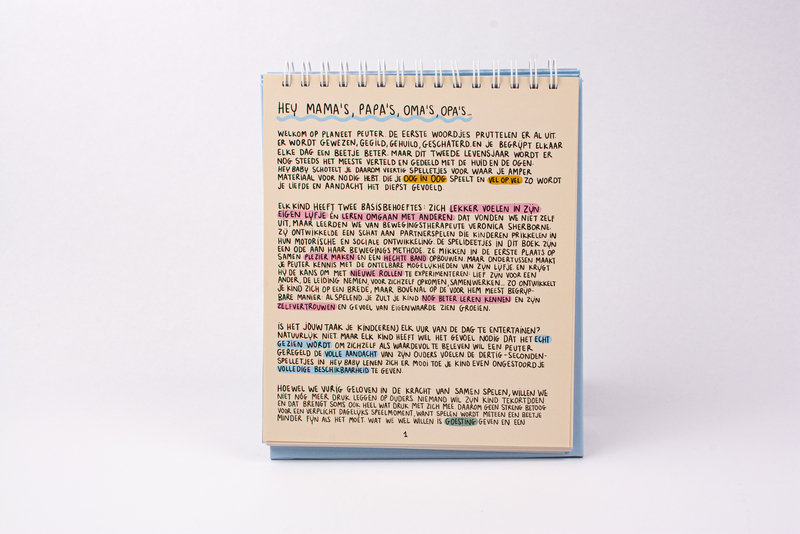 HEY MAMA'S, PAPA'S, OMA'S, OPA'S...
WELKOM OP PLANEET PEUTER. DE EERSTE WOORDJES PRUTTELEN ER AL UIT.
ER WORDT GEWEZEN, GEGILD, GEHUILD, GESCHATERD, EN JE BEGRIJPT ELKAAR
ELKE DAG EEN BEETJE BETER. MAAR DIT TWEEDE LEVENSJAAR WORDT ER
NOG STEEDS HET MEESTE VERTELD EN GEDEELD MET DE HUID EN DE OGEN.
HEY BABY SCHOTELT JE DAAROM VEERTIG SPELLETJES VOOR WAAR JE AMPER
MATERIAAL VOOR NODIG HEBT. DIE JE OOG IN OOG SPEELT EN VEL OP VEL ZO WORDT
JE LIEFDE EN AANDACHT HET DIEPST GEVOELD.
ELK KIND HEEFT TWEE BASISBEHOEFTES: ZICH LEKKER VOELEN IN ZIJN
EIGEN LIJFJE ÉN LEREN OMGAAN MET ANDEREN. DAT VONDEN WE NIET ZELF
UIT, MAAR LEERDEN WE VAN BEWEGINGSTHERAPEUTE VERONICA SHERBORNE.
ZIJ ONTWIKKELDE EEN SCHAT AAN PARTNERSPELEN DIE KINDEREN PRIKKELEN IN
HUN MOTORISCHE EN SOCIALE ONTWIKKELING. DE SPELIDEETJES IN DIT BOEK ZIJN
EEN ODE AAN HAAR BEWEGINGS METHODE. ZE MIKKEN IN DE EERSTE PLAATS OP
SAMEN PLEZIER MAKEN EN EEN HECHTE BAND OPBOUWEN. MAAR ONDERTUSSEN MAAKT
JE PEUTER KENNIS MET DE ONTELBARE MOGELIJKHEDEN VAN ZIJN LIJFJE EN KRIJGT
HIJ DE KANS OM MET NIEUWE ROLLEN TE EXPERIMENTEREN: LIEF ZIJN VOOR EEN
ANDER, DE LEIDING NEMEN, VOOR ZICHZELF OPKOMEN, SAMENWERKEN... ZO ONTWIKKELT
JE KIND ZICH OP EEN BREDE, MAAR BOVENAL OP DE VOOR HEM MEEST BEGRIJP-
BARE MANIER: AL SPELEND. JE ZULT JE KIND NOG BETER LEREN KENNEN EN ZIJN
ZELFVERTROUWEN EN GEVOEL VAN EIGENWAARDE ZIEN GROEIEN.
IS HET JOUW TAAK JE KIND(EREN) ELK UUR VAN DE DAG TE ENTERTAINEN?
NATUURLIJK NIET. MAAR ELK KIND HEEFT WEL HET GEVOEL NODIG DAT HET ECHT
GEZIEN WORDT OM ZICHZELF ALS WAARDEVOL TE BELEVEN WIL EEN PEUTER
GEREGELD DE VOLLE AANDACHT VAN ZIJN OUDERS VOELEN. DE DERTIG-SECONDEN-
SPELLETJES IN HEY BABY LENEN ZICH ER MOOI TOE JE KIND EVEN ONGESTOORD JE
VOLLEDIGE BESCHIKBAARHEID TE GEVEN.
HOEWEL WE VURIG GELOVEN IN DE KRACHT VAN SAMEN SPELEN, WILLEN WE
NIET NÓG MEER DRUK LEGGEN OP OUDERS. NIEMAND WIL ZIJN KIND TEKORTDOEN
EN DAT BRENGT SOMS OOK HEEL WAT DRUK MET ZICH MEE. DAAROM GEEN STRENG BETOOG
VOOR EEN VERPLICHT DAGELIJKS SPEELMOMENT, WANT SPELEN WORDT METEEN EEN BEETJE
MINDER FIJN ALS HET MOET. WAT WE WEL WILLEN IS GOESTING GEVEN EN EEN
1